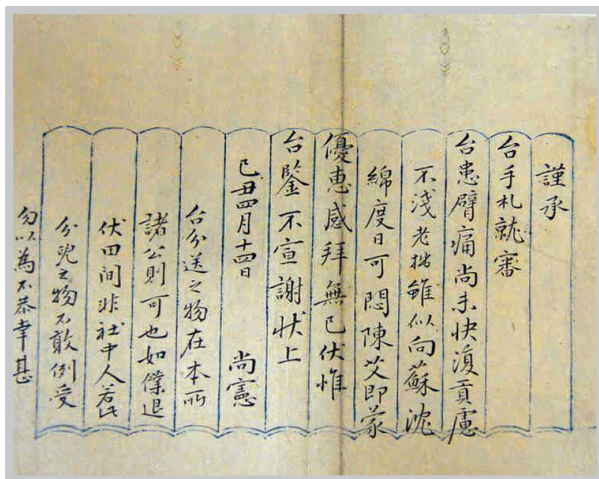 謹承
台手札就審
台患臂痛尚未快復貢慮
不淺老拙雖似向蘇沈
綿度日可悶陳艾即蒙
優惠感拜無已伏惟
台鑒不宣謝狀上
己丑四月十四日 尚憲
台分送之物在本所
諸公則可也如僕退
伏田間非社中人若此
分貺之物不敢例受
勿以為不恭幸甚